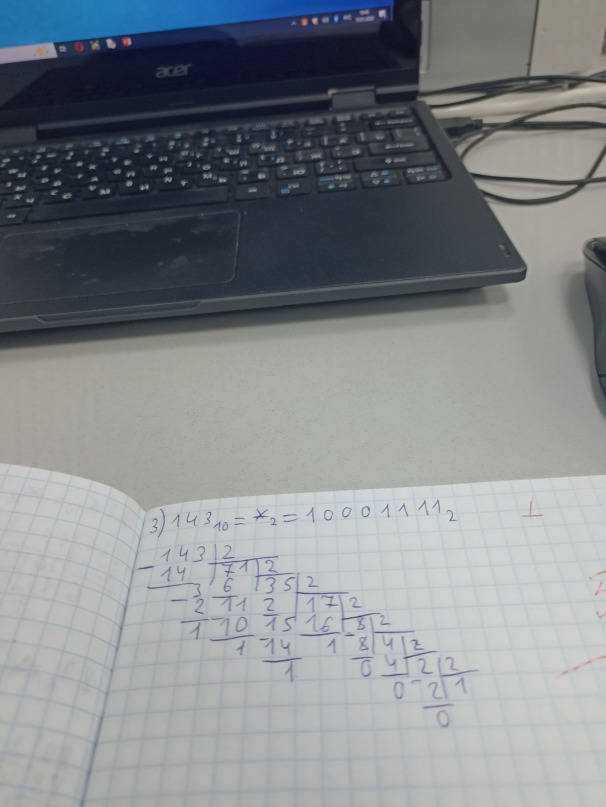 acer
3) 143₁₀ = *₂ = 10001111₂
143 2
14 71 2
3 6 35 2
2 11 2 17 2
1 10 15 16 8 2
1 14 1 8 4 2
1 0 4 2 2
0 2 1
0